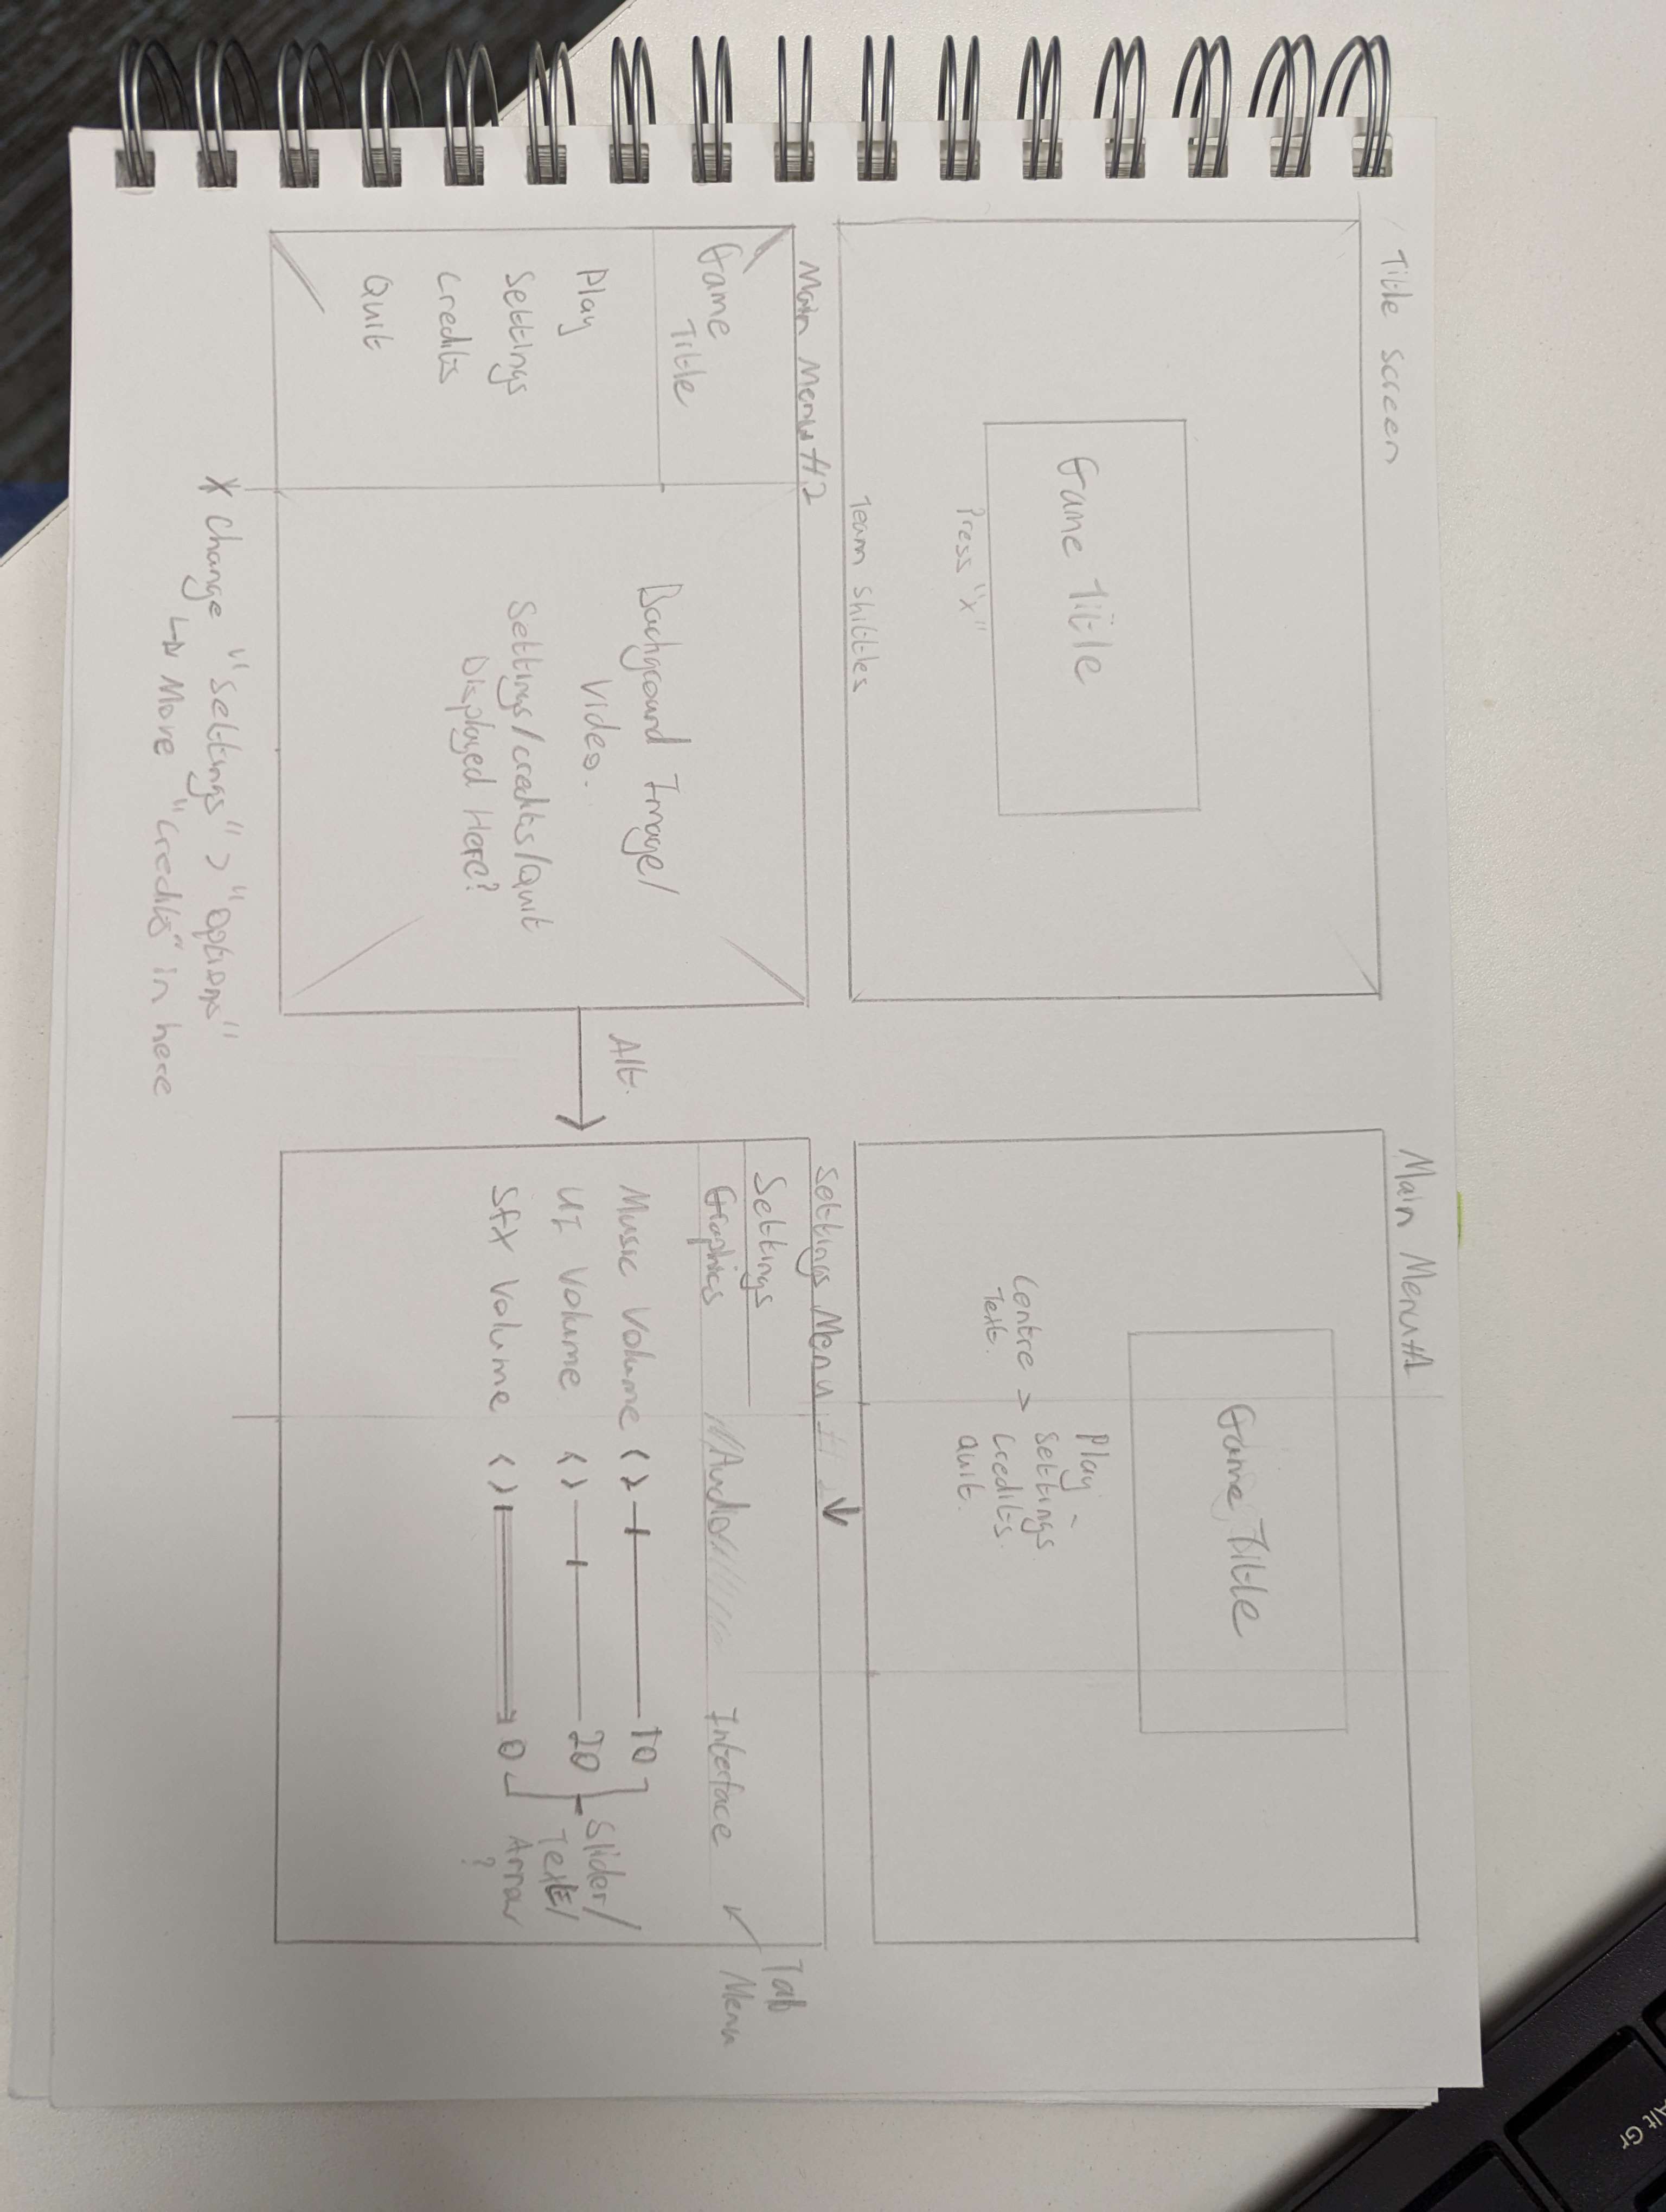 Alt Gr
Title Screen
Game Title
Press "X"
Team Shittles
Main Menu #1
Game Title
Play
Settings
Credits
Quit.
Centre >
Text.
Main Menu #2
Game
Title
Play
Settings
Credits
Quit
Background Image/
Video.
Settings/credits/Quit
Displayed Here?
Alt.
Settings Menu
Settings
Graphics Audio Interface
Tab
Menu
Music Volume < > 10
UI Volume < > 20
SFX Volume < > 0
Slider/
Text/
Arrow
?
* Change "Settings" > "Options"
Move "Credits" in here